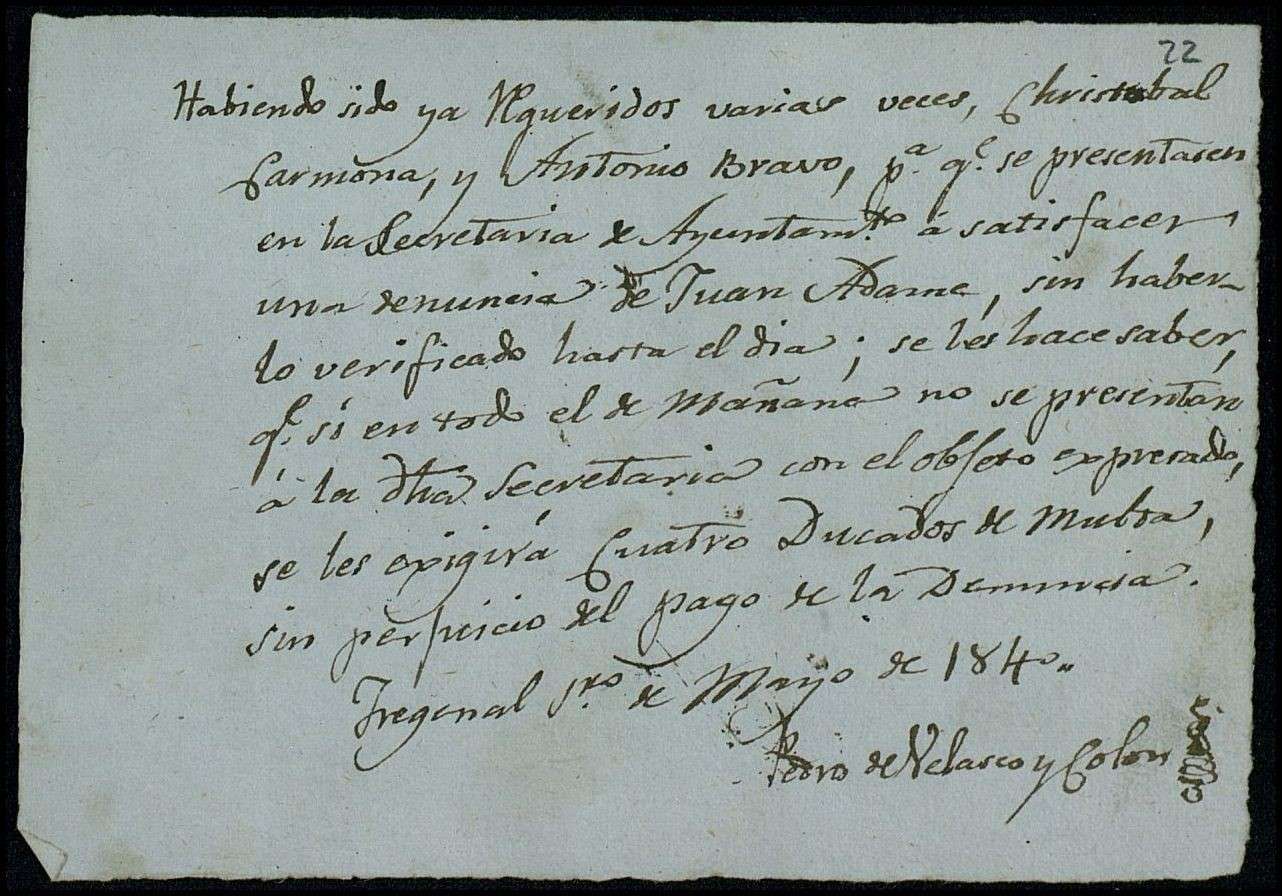 22
Habiendo sido ya Requeridos varias veces, Christobal
Carmona, y Antonio Bravo, pª. qᵉ. se presentasen
en la Secretaria de Ayuntamᵗᵒ. á satisfacer
una denuncia de Juan Adame, sin haber-
lo verificado hasta el dia; se les hace saber,
qᵉ. si en todo el de Mañana no se presentan
á la dha Secretaria con el objeto expresado,
se les exigirá Cuatro Ducados de Multa,
sin perjuicio del pago de la Denuncia.
Fregenal 1.ʳᵒ de Mayo de 1840..
Pedro de Velasco y Colon